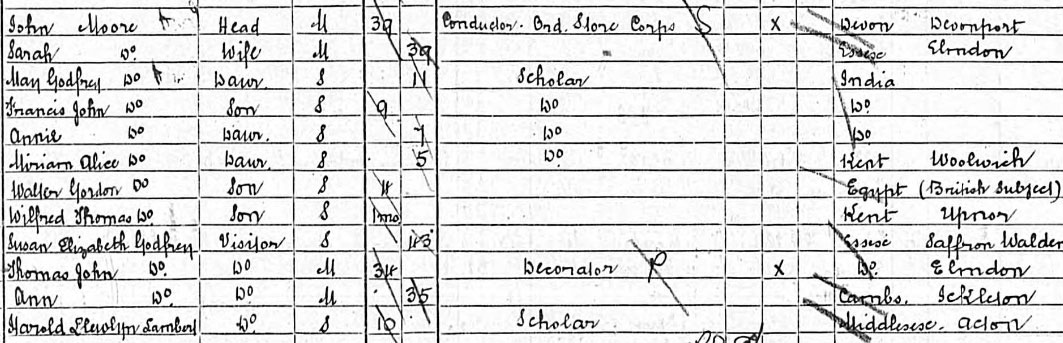 John Moore Head M 39 Conductor. Ord. Store Corps S X Devon Devonport
Sarah Do Wife M 39 Essex Elmdon
May Godfrey Do Daur. S 11 Scholar India
Francis John Do Son S 9 Do Do
Annie Do Daur. S 7 Do Do
Miriam Alice Do Daur. S 5 Do Kent Woolwich
Walter Gordon Do Son S 4 Egypt (British Subject)
Wilfred Thomas Do Son S 1mo Kent Upnor
Susan Elizabeth Godfrey Visitor S 43 Essex Saffron Walden
Thomas John Do. Do M 34 Decorator P X Do. Elmdon
Ann Do. Do M 35 Cambs. Ickleton
Harold Llewlyn Lambert Do. S 10 Scholar Middlesex. Acton